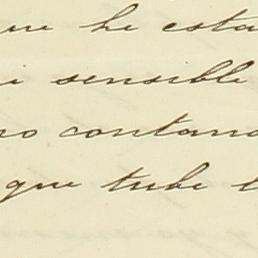 que he esta
i sensible
no contand
que tube t